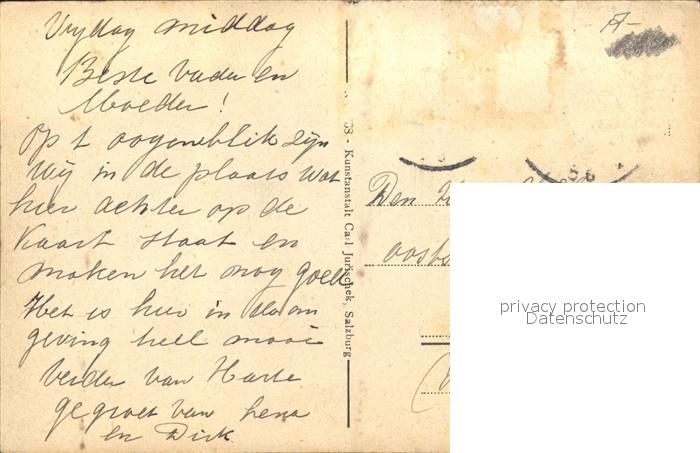 Vrydag middag
Beste Vader en
Moeder!
Op t oogenblik zijn
wij in de plaats wat
hier achter op de
kaart staat en
maken het nog goed
Het is hier in de om
geving heel mooi
verder van Harte
gegroet van Lena
en Dirk
38 - Kunstanstalt Carl Jurischek, Salzburg
A-
Den
privacy protection
Datenschutz